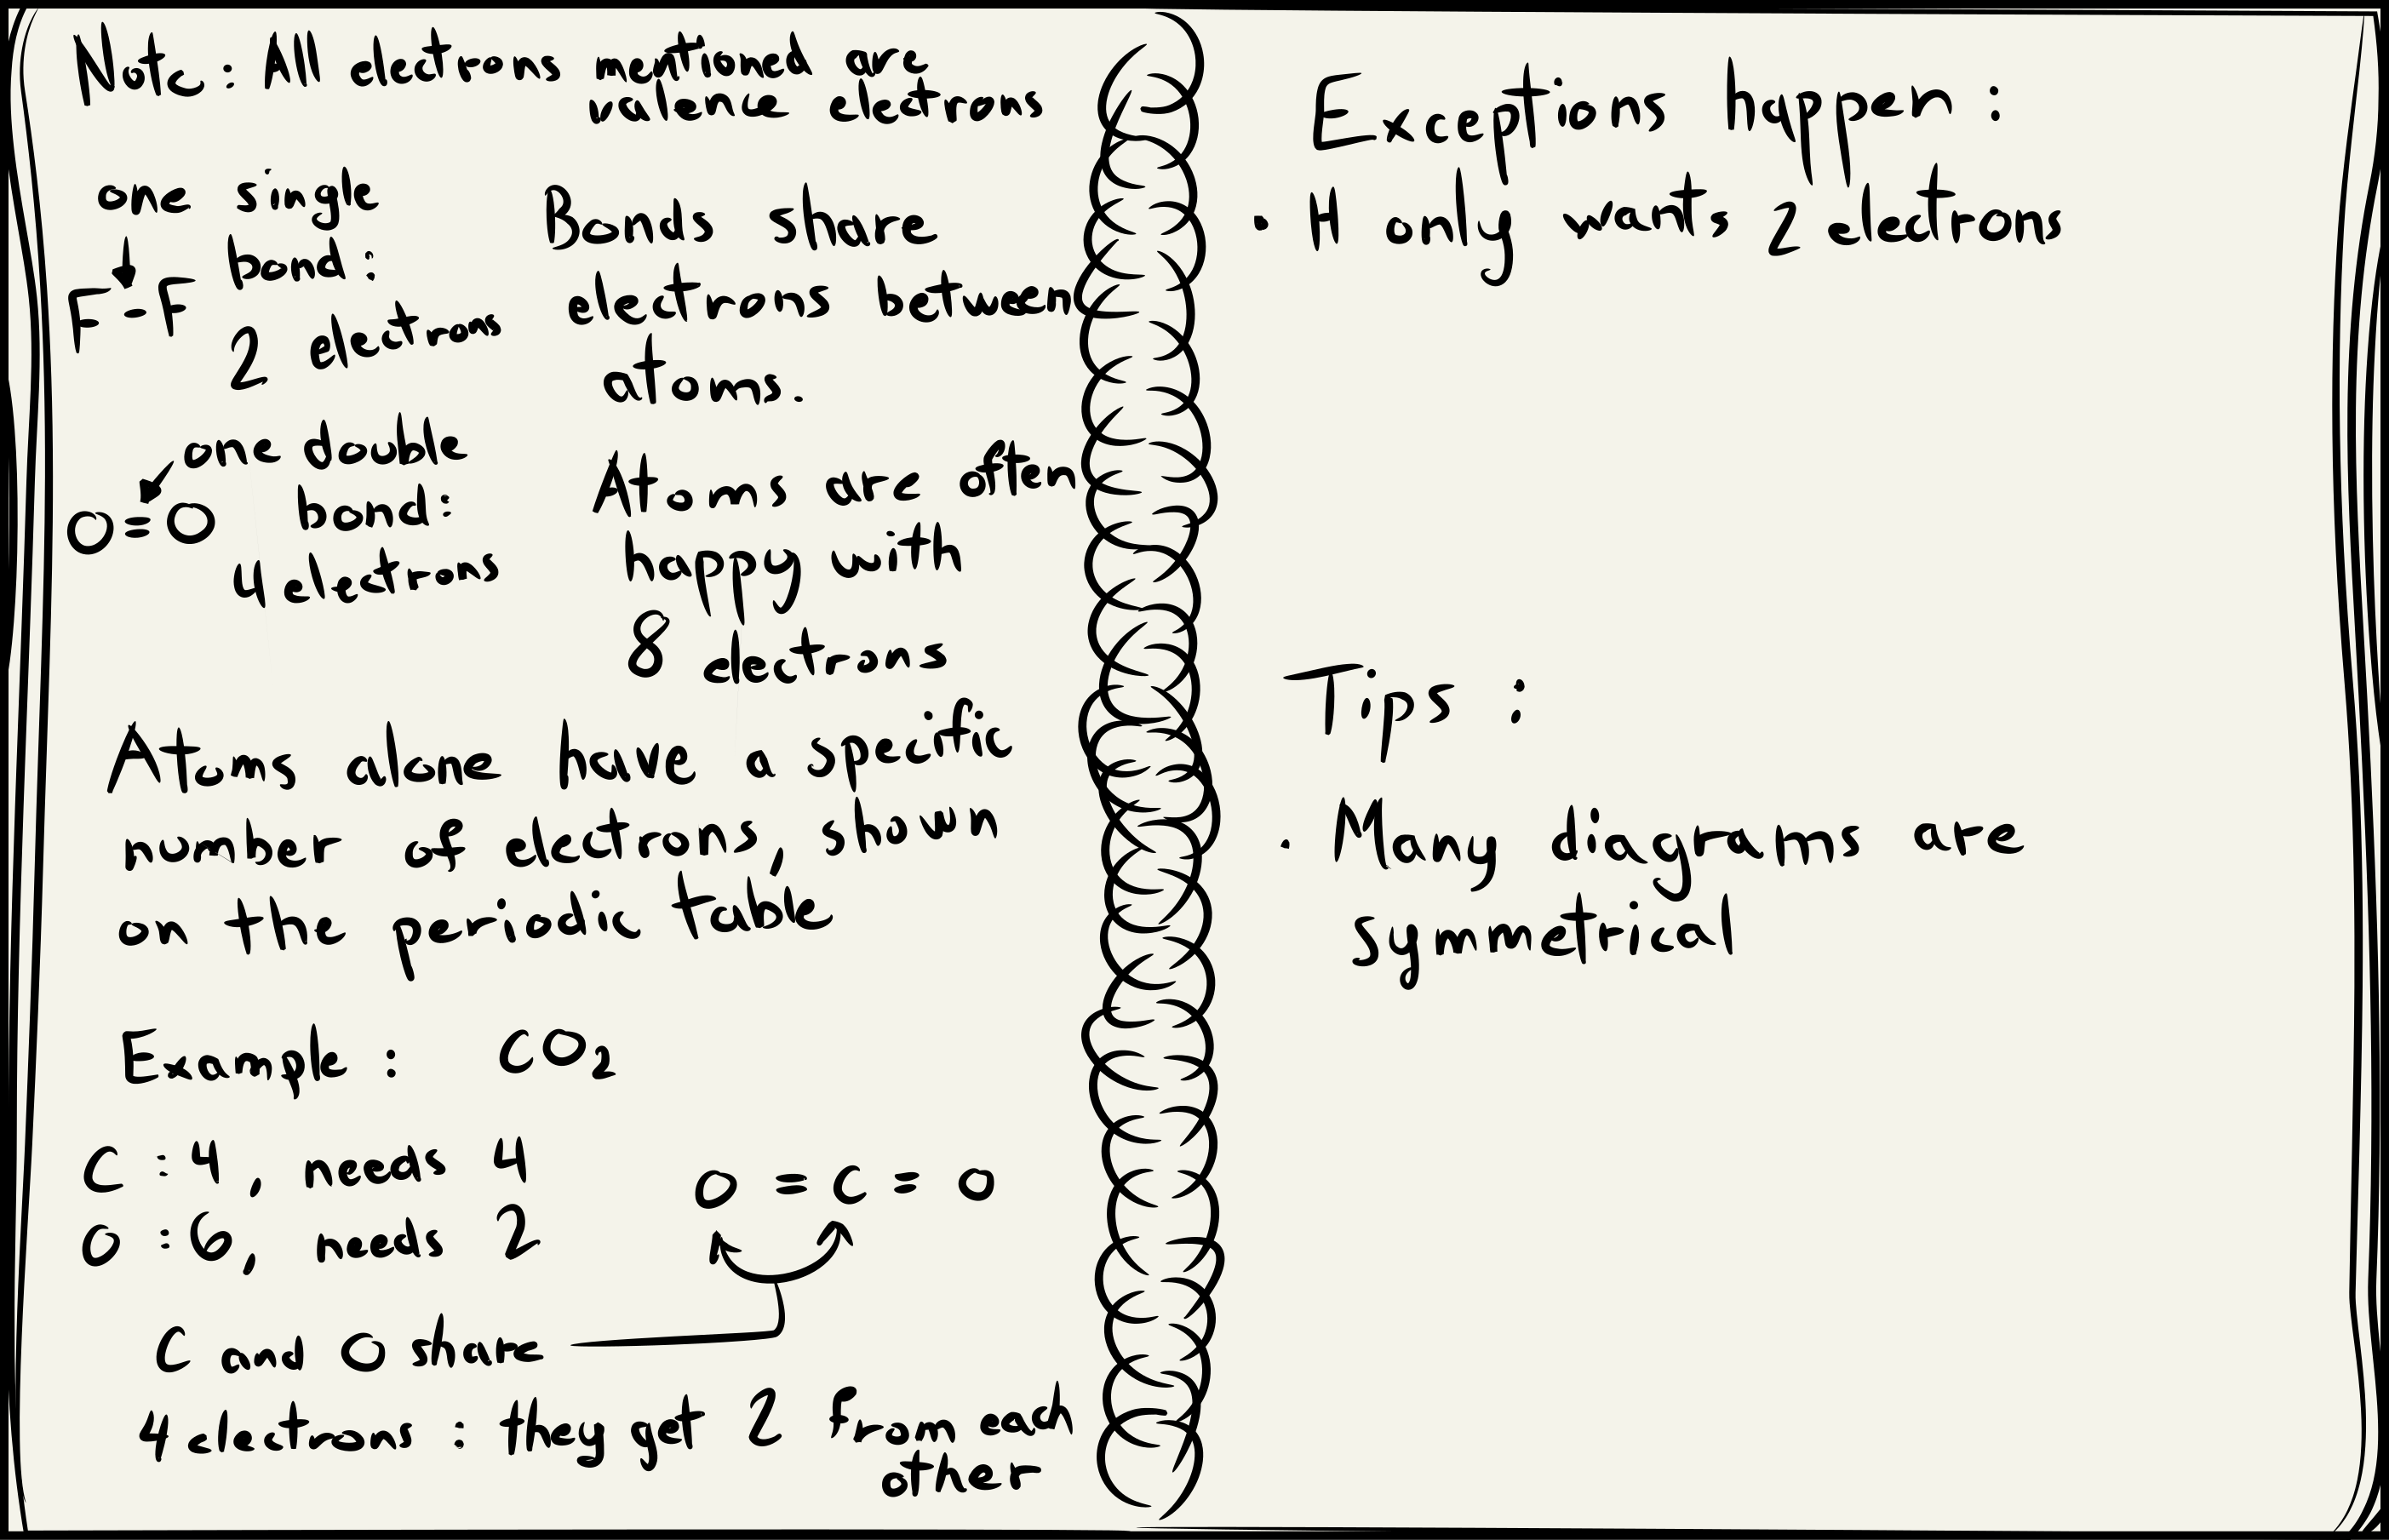 Note : All electrons mentioned are
valence electrons
one single
bond :
F - F
2 electrons
Bonds share
electrons between
atoms.
one double
bond :
O = O
4 electrons
Atoms are often
happy with
8 electrons
Atoms alone have a specific
number of electrons, shown
on the periodic table
Example : CO₂
C : 4, needs 4
O : 6, needs 2
O = C = O
C and O share
4 electrons : they get 2 from each
other
Exceptions happen :
• H only wants 2 electrons
Tips :
• Many diagrams are
symmetrical